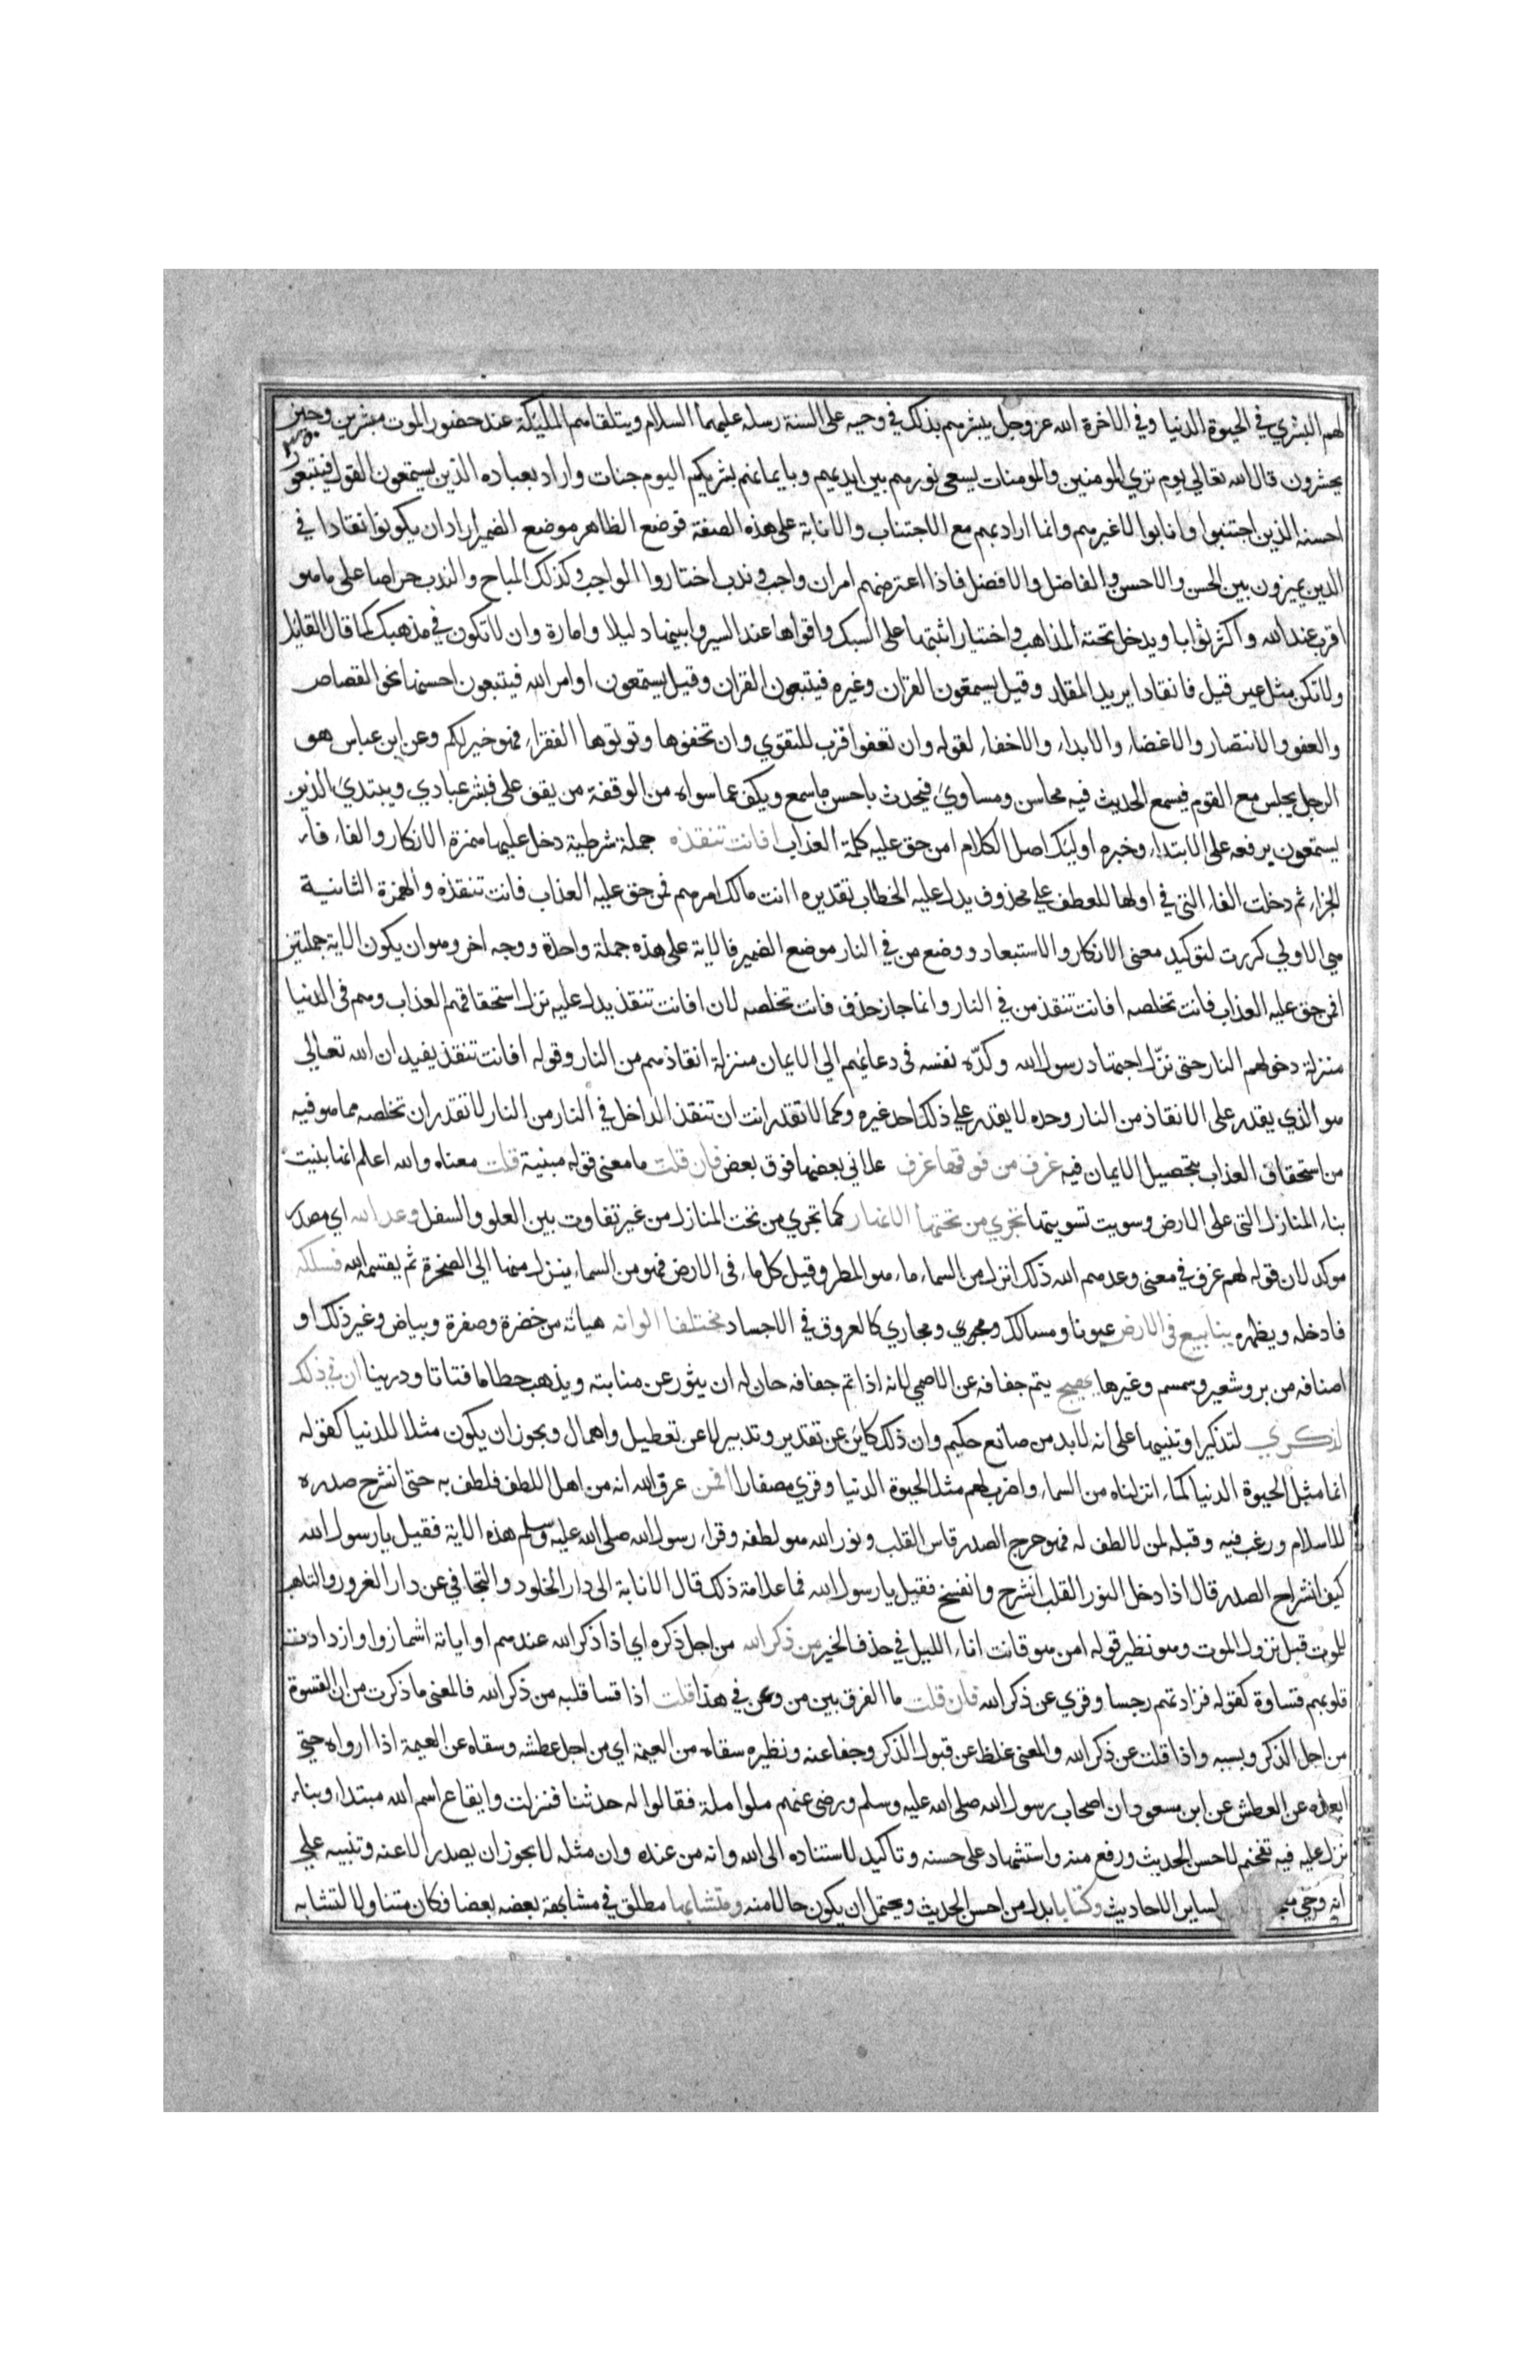 لهم البشري في الحيوة الدنيا وفي الاخرة الله عز وجل يبشرهم بذلك في وحيه على السنة رسله عليهم السلام ويتلقاهم المليكة عند حضور الموت مبشرين وحين
يحشرون قال الله تعالي يوم تري المومنين والمومنات يسعى نورهم بين ايديهم وبايمانهم بشريكم اليوم جنات واراد بعباده الذين يستمعون القول فيتبعون
احسنه الذين اجتنبوا وانابوا لا غيرهم وانما اراد بهم مع الاجتناب والانابة على هذه الصفة فوضع الظاهر موضع الضمير اراد ان يكونوا نقادا في
الدين يميزون بين الحسن والاحسن والفاضل والافضل فاذا اعترضهم امران واجب وندب اختاروا الواجب وكذلك المباح والندب حراصا على ما هو
اقرب عند الله واكثر ثوابا ويدخل تحته المذاهب واختيار اثبتها على السبك واقواها عند السبر وابينها دليلا وامارة وان لا تكون في مذهبك كما قال القائل
ولا تكن مثل عير قيد فانقادا يريد المقلد وقيل يستمعون القران وغيره فيتبعون القران وقيل يستمعون اوامر الله فيتبعون احسنها نحو القصاص
والعفو والانتصار والاغضاء والابداء والاخفاء لقوله وان تعفوا اقرب للتقوي وان تخفوها وتوتوها الفقراء فهو خير لكم وعن ابن عباس هو
الرجل يجلس مع القوم فيسمع الحديث فيه محاسن ومساوي فيحدث باحسن ما سمع ويكف عما سواه من الوقفة من يقف على فبشر عبادي ويبتدي الذين
يستمعون يرفعه على الابتداء وخبره اوليك اصل الكلام امن حق عليه كلمة العذاب افانت تنقذه جملة شرطية دخل عليها همزة الانكار والفاء فاء
الجزاء ثم دخلت الفاء التي في اولها للعطف علي محذوف يدل عليه الخطاب تقديره اانت مالك امرهم فمن حق عليه العذاب فانت تنقذه والهمزة الثانية
هي الاولي كررت لتوكيد معنى الانكار والاستبعاد ووضع من في النار موضع الضمير فالاية على هذه جملة واحدة ووجه اخر وهو ان يكون الاية جملتين
افمن حق عليه العذاب فانت تخلصه افانت تنقذ من في النار وانما جاز حذف فانت تخلصه لان افانت تنقذ يدل عليه نزل استحقاقهم العذاب وهم في الدنيا
منزلة دخولهم النار حتى نزّل اجتهاد رسول الله وكدّه نفسه في دعائهم الي الايمان منزلة انقاذهم من النار وقوله افانت تنقذ يفيد ان الله تعالي
هو الذي يقدر على الانقاذ من النار وحده لا يقدر علي ذلك احد غيره وكما لا تقدر انت ان تنقذ الداخل في النار من النار لا تقدر ان تخلصه مما هو فيه
من استحقاق العذاب بتحصيل الايمان فيه غرف من فوقها غرف علاني بعضها فوق بعض فان قلت ما معنى قوله مبنية قلت معناه والله اعلم انها بنيت
بناء المنازل التي على الارض وسويت تسويتها تجري من تحتها الانهار كما تجري من تحت المنازل من غير تفاوت بين العلو والسفل وعد الله اي مصدر
موكد لان قوله لهم غرف في معنى وعدهم الله ذلك انزل من السماء ماء هو المطر وقيل كل ماء في الارض فهو من السماء ينزل منها الي الصخرة ثم يقسمه الله فسلكه
فادخله ويظهره ينابيع في الارض عيونا ومسالك ومجري ومجاري كالعروق في الاجساد مختلفا الوانه هياته من خضرة وصفرة وبياض وغير ذلك او
اصنافه من بر وشعير وسمسم وغيرها يهيج يتم جفافه عن الاصمي لانه اذا تم جفافه حان له ان يثور عن منابته ويذهب حطاما فتاتا ودرينا ان في ذلك
لذكري لتذكيرا وتنبيها على انه لا بد من صانع حكيم وان ذلك كاين عن تقدير وتدبير لا عن تعطيل واهمال ويجوز ان يكون مثلا للدنيا كقوله
انما مثل الحيوة الدنيا كماء انزلناه من السماء واضرب لهم مثل الحيوة الدنيا وقري مصفارا افمن عرف الله انه من اهل اللطف فلطف به حتى انشرح صدره
للاسلام ورغب فيه وقبله لمن لا لطف له فهو حرج الصدر قاس القلب ونور الله هو لطفه وقراء رسول الله صلى الله عليه وسلم هذه الاية فقيل يا رسول الله
كيف انشراح الصدر قال اذا دخل النور القلب انشرح وانفسح فقيل يا رسول الله فما علامة ذلك قال الانابة الى دار الخلود والتجافي عن دار الغرور والتاهب
للموت قبل نزول الموت وهو نظير قوله امن هو قانت اناء الليل في حذف الخبر من ذكر الله من اجل ذكره اي اذا ذكر الله عندهم او اياته اشمازوا وازدادت
قلوبهم قساوة كقوله فزادتهم رجسا وقري عن ذكر الله فان قلت ما الفرق بين من وعن في هذا قلت اذا قسا قلبه من ذكر الله فالمعنى ما ذكرت من ان القسوة
من اجل الذكر وبسببه واذا قلت عن ذكر الله والمعنى غلظ عن قبول الذكر وجفا عنه ونظيره سقاه من العيمة اي من اجل عطشه وسقاه عن العيمة اذا ارواه حتي
ابعده عن العطش عن ابن مسعود ان اصحاب رسول الله صلى الله عليه وسلم ورضى عنهم ملوا ملة فقالوا له حدثنا فنزلت وايقاع اسم الله مبتداء وبناء
نزل عليه فيه تفخيم لاحسن الحديث ورفع منه واستشهاد على حسنه وتاكيد لاستناده الى الله وانه من عنده وان مثله لا يجوز ان يصدر الا عنه وتنبيه علي
انه وحي لساير الاحاديث وكتابا بدل من احسن الحديث ويحتمل ان يكون حالا منه ومتشابها مطلق في مشابهة بعضه بعضا فكان متناولا لتشابه